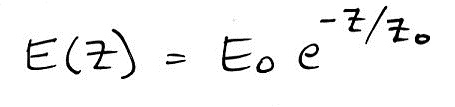 E(Z) = E₀ e^{-Z/Z₀}